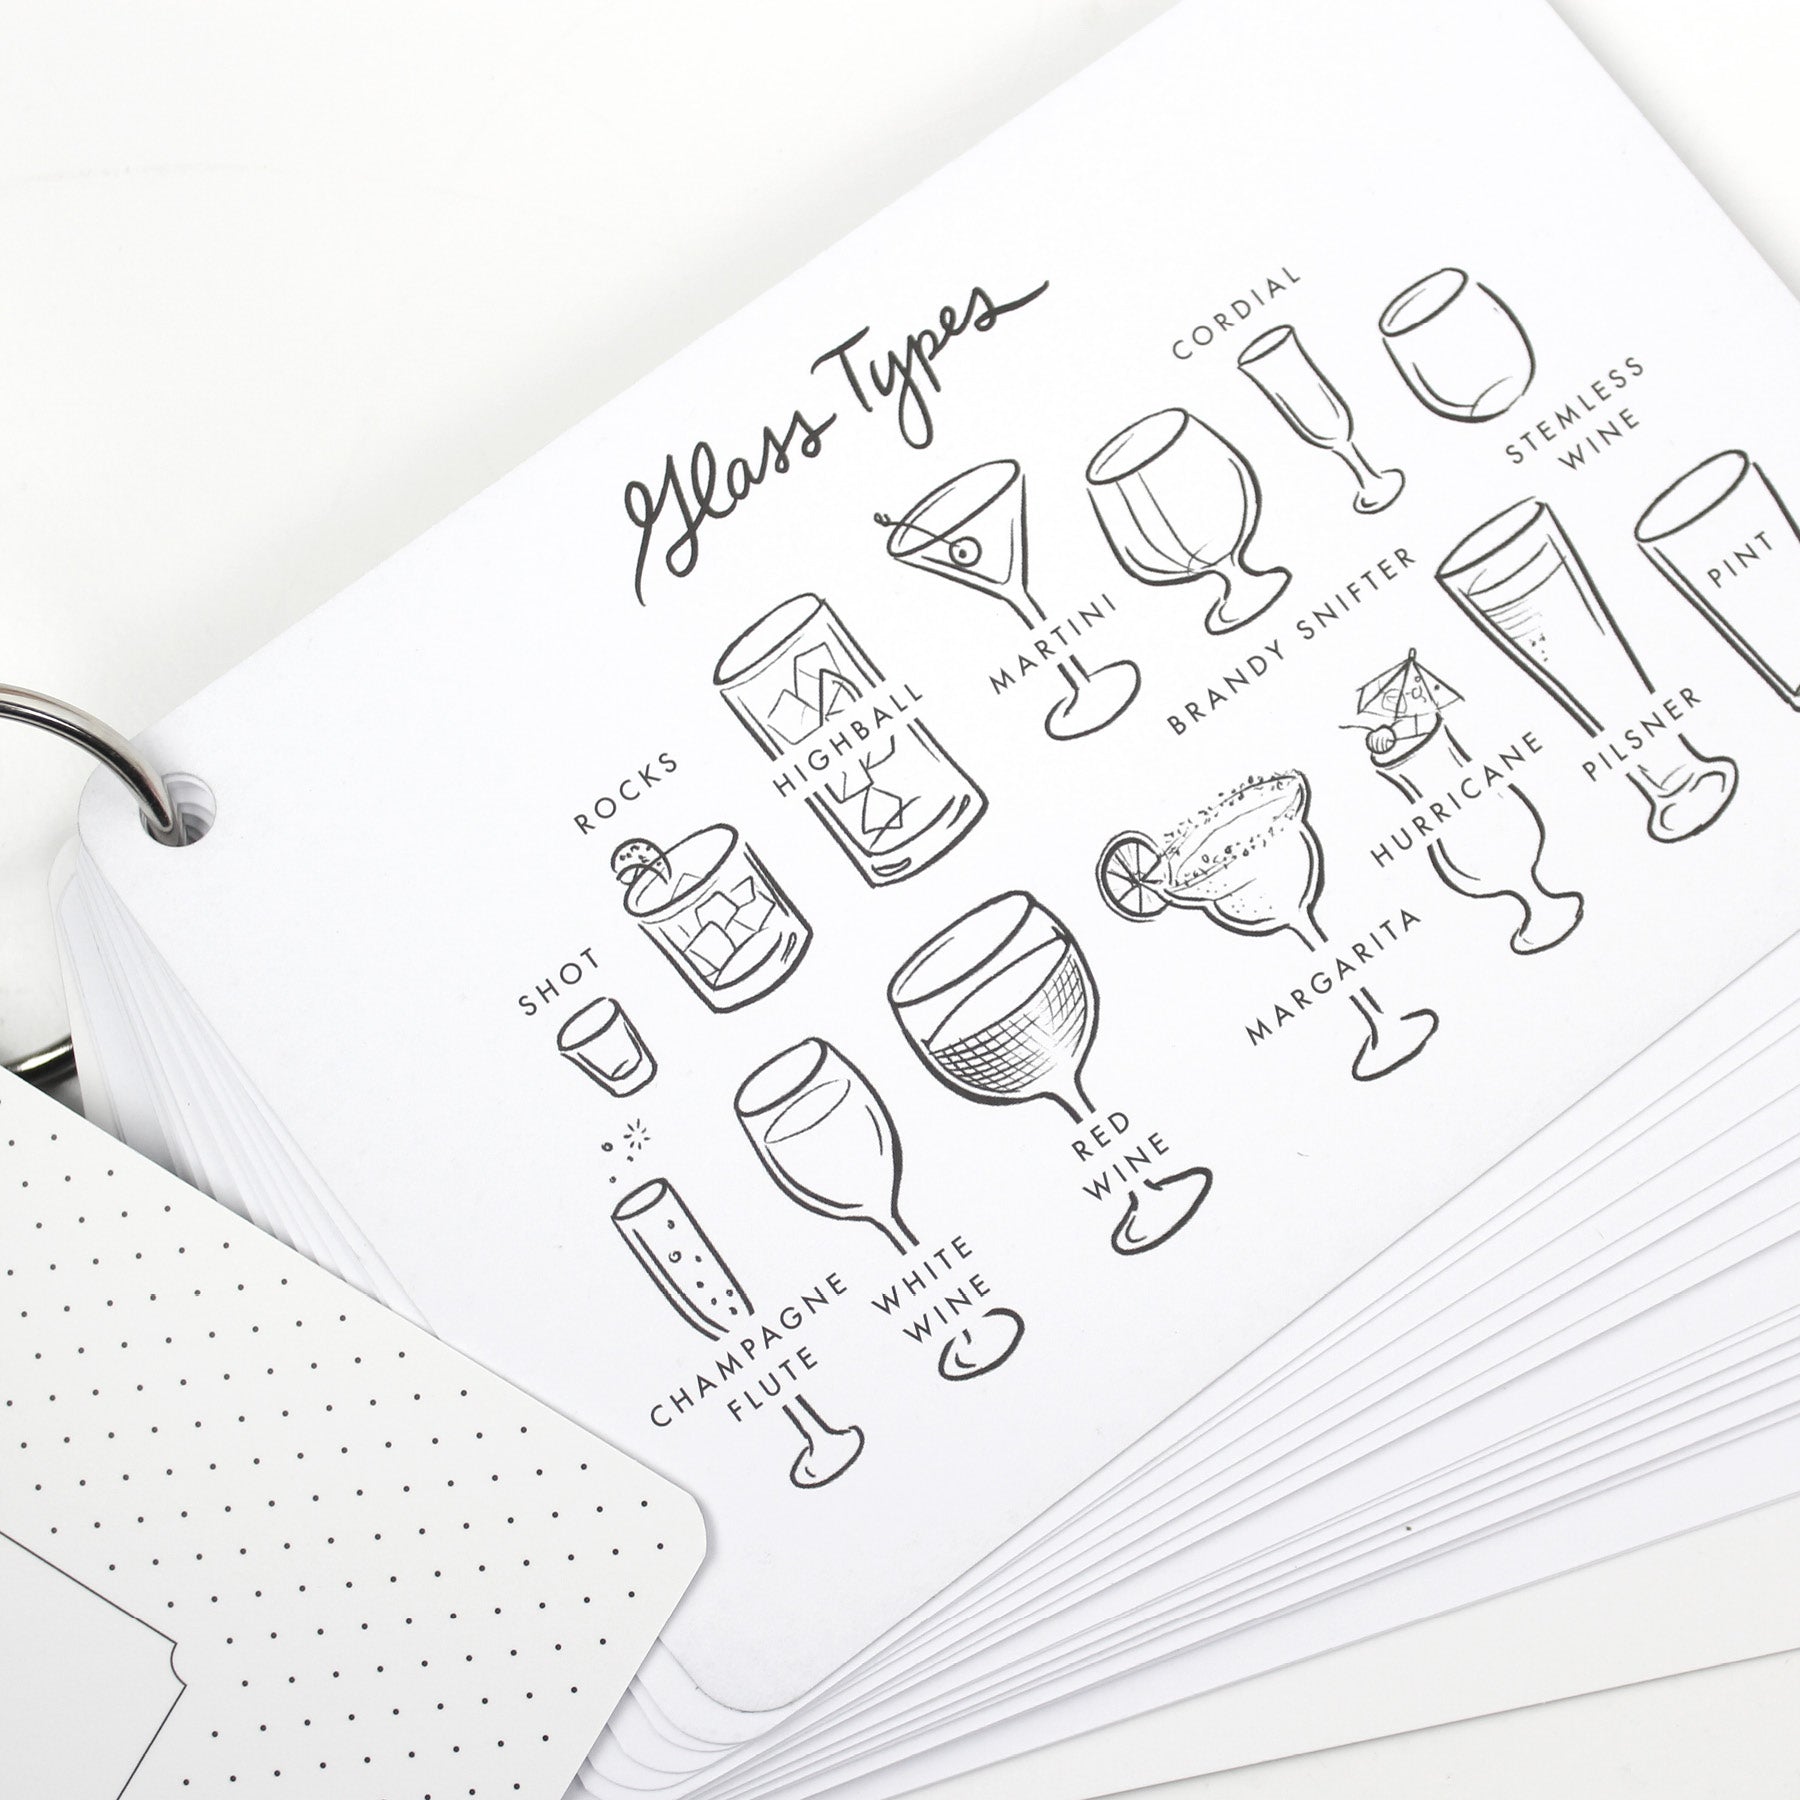 Glass Types
SHOT
ROCKS
HIGHBALL
MARTINI
BRANDY SNIFTER
CORDIAL
STEMLESS
WINE
CHAMPAGNE
FLUTE
WHITE
WINE
RED
WINE
MARGARITA
HURRICANE
PILSNER
PINT